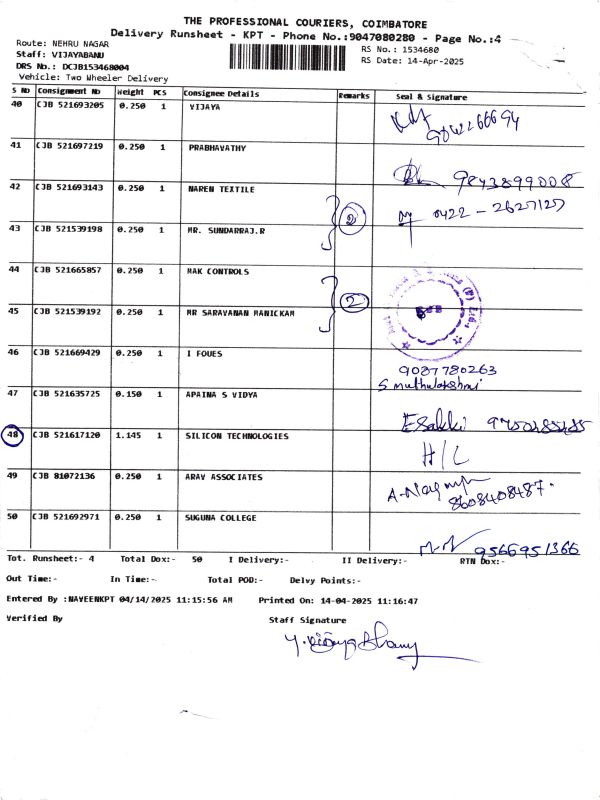 THE PROFESSIONAL COURIERS, COIMBATORE
Delivery Runsheet - KPT - Phone No.:9047080280 - Page No.:4
Route: NEHRU NAGAR
RS No.: 1534680
Staff: VIJAYABANU
RS Date: 14-Apr-2025
DRS No.: DCJB153468004
Vehicle: Two Wheeler Delivery
S No Consignment No Weight PCS Consignee Details Remarks Seal & Signature
40 CJB 521693205 0.250 1 VIJAYA
41 CJB 521697219 0.250 1 PRABHAVATHY
9843899008
42 CJB 521693143 0.250 1 NAREN TEXTILE
2 0422 - 2627127
43 CJB 521539198 0.250 1 MR. SUNDARRAJ.R
44 CJB 521665857 0.250 1 MAK CONTROLS
2
45 CJB 521539192 0.250 1 MR SARAVANAN MANICKAM
46 CJB 521669429 0.250 1 I FOUES
9087780263
S muthulakshmi
47 CJB 521635725 0.150 1 APAINA S VIDYA
Esakki
48 CJB 521617120 1.145 1 SILICON TECHNOLOGIES
H/L
49 CJB 81072136 0.250 1 ARAV ASSOCIATES
8608408487.
50 CJB 521692971 0.250 1 SUGUNA COLLEGE
9566951366
Tot. Runsheet:- 4 Total Dox:- 50 I Delivery:- II Delivery:- RTN Dox:-
Out Time:- In Time:- Total POD:- Delvy Points:-
Entered By :NAVEENKPT 04/14/2025 11:15:56 AM Printed On: 14-04-2025 11:16:47
Verified By Staff Signature